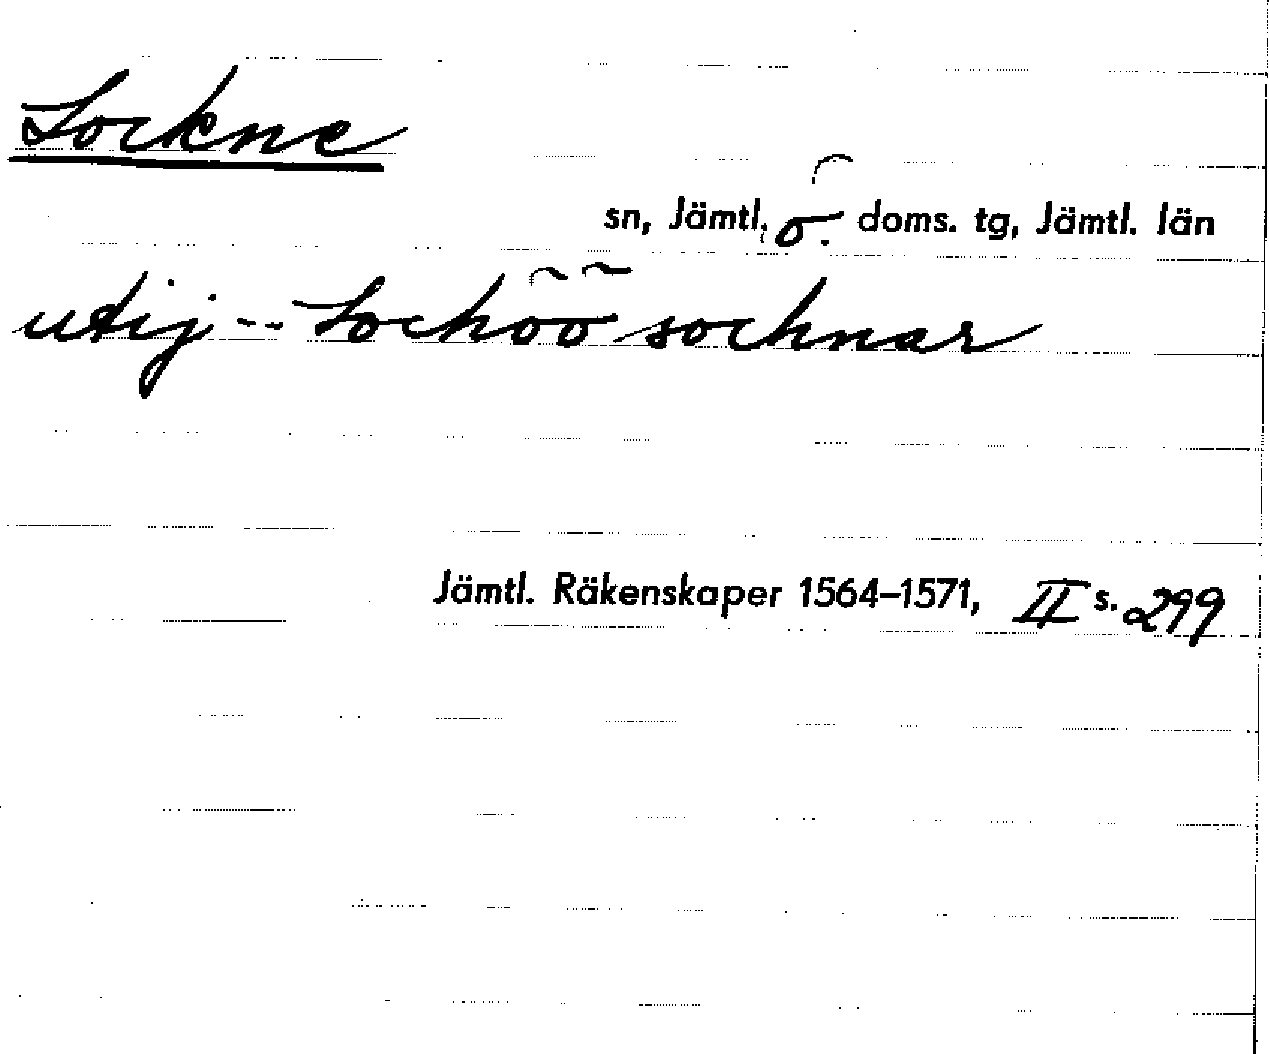 Lockne
sn, Jämtl. ö. doms. tg, Jämtl. län
utij -- Locköö socknar
Jämtl. Räkenskaper 1564–1571, II s. 299